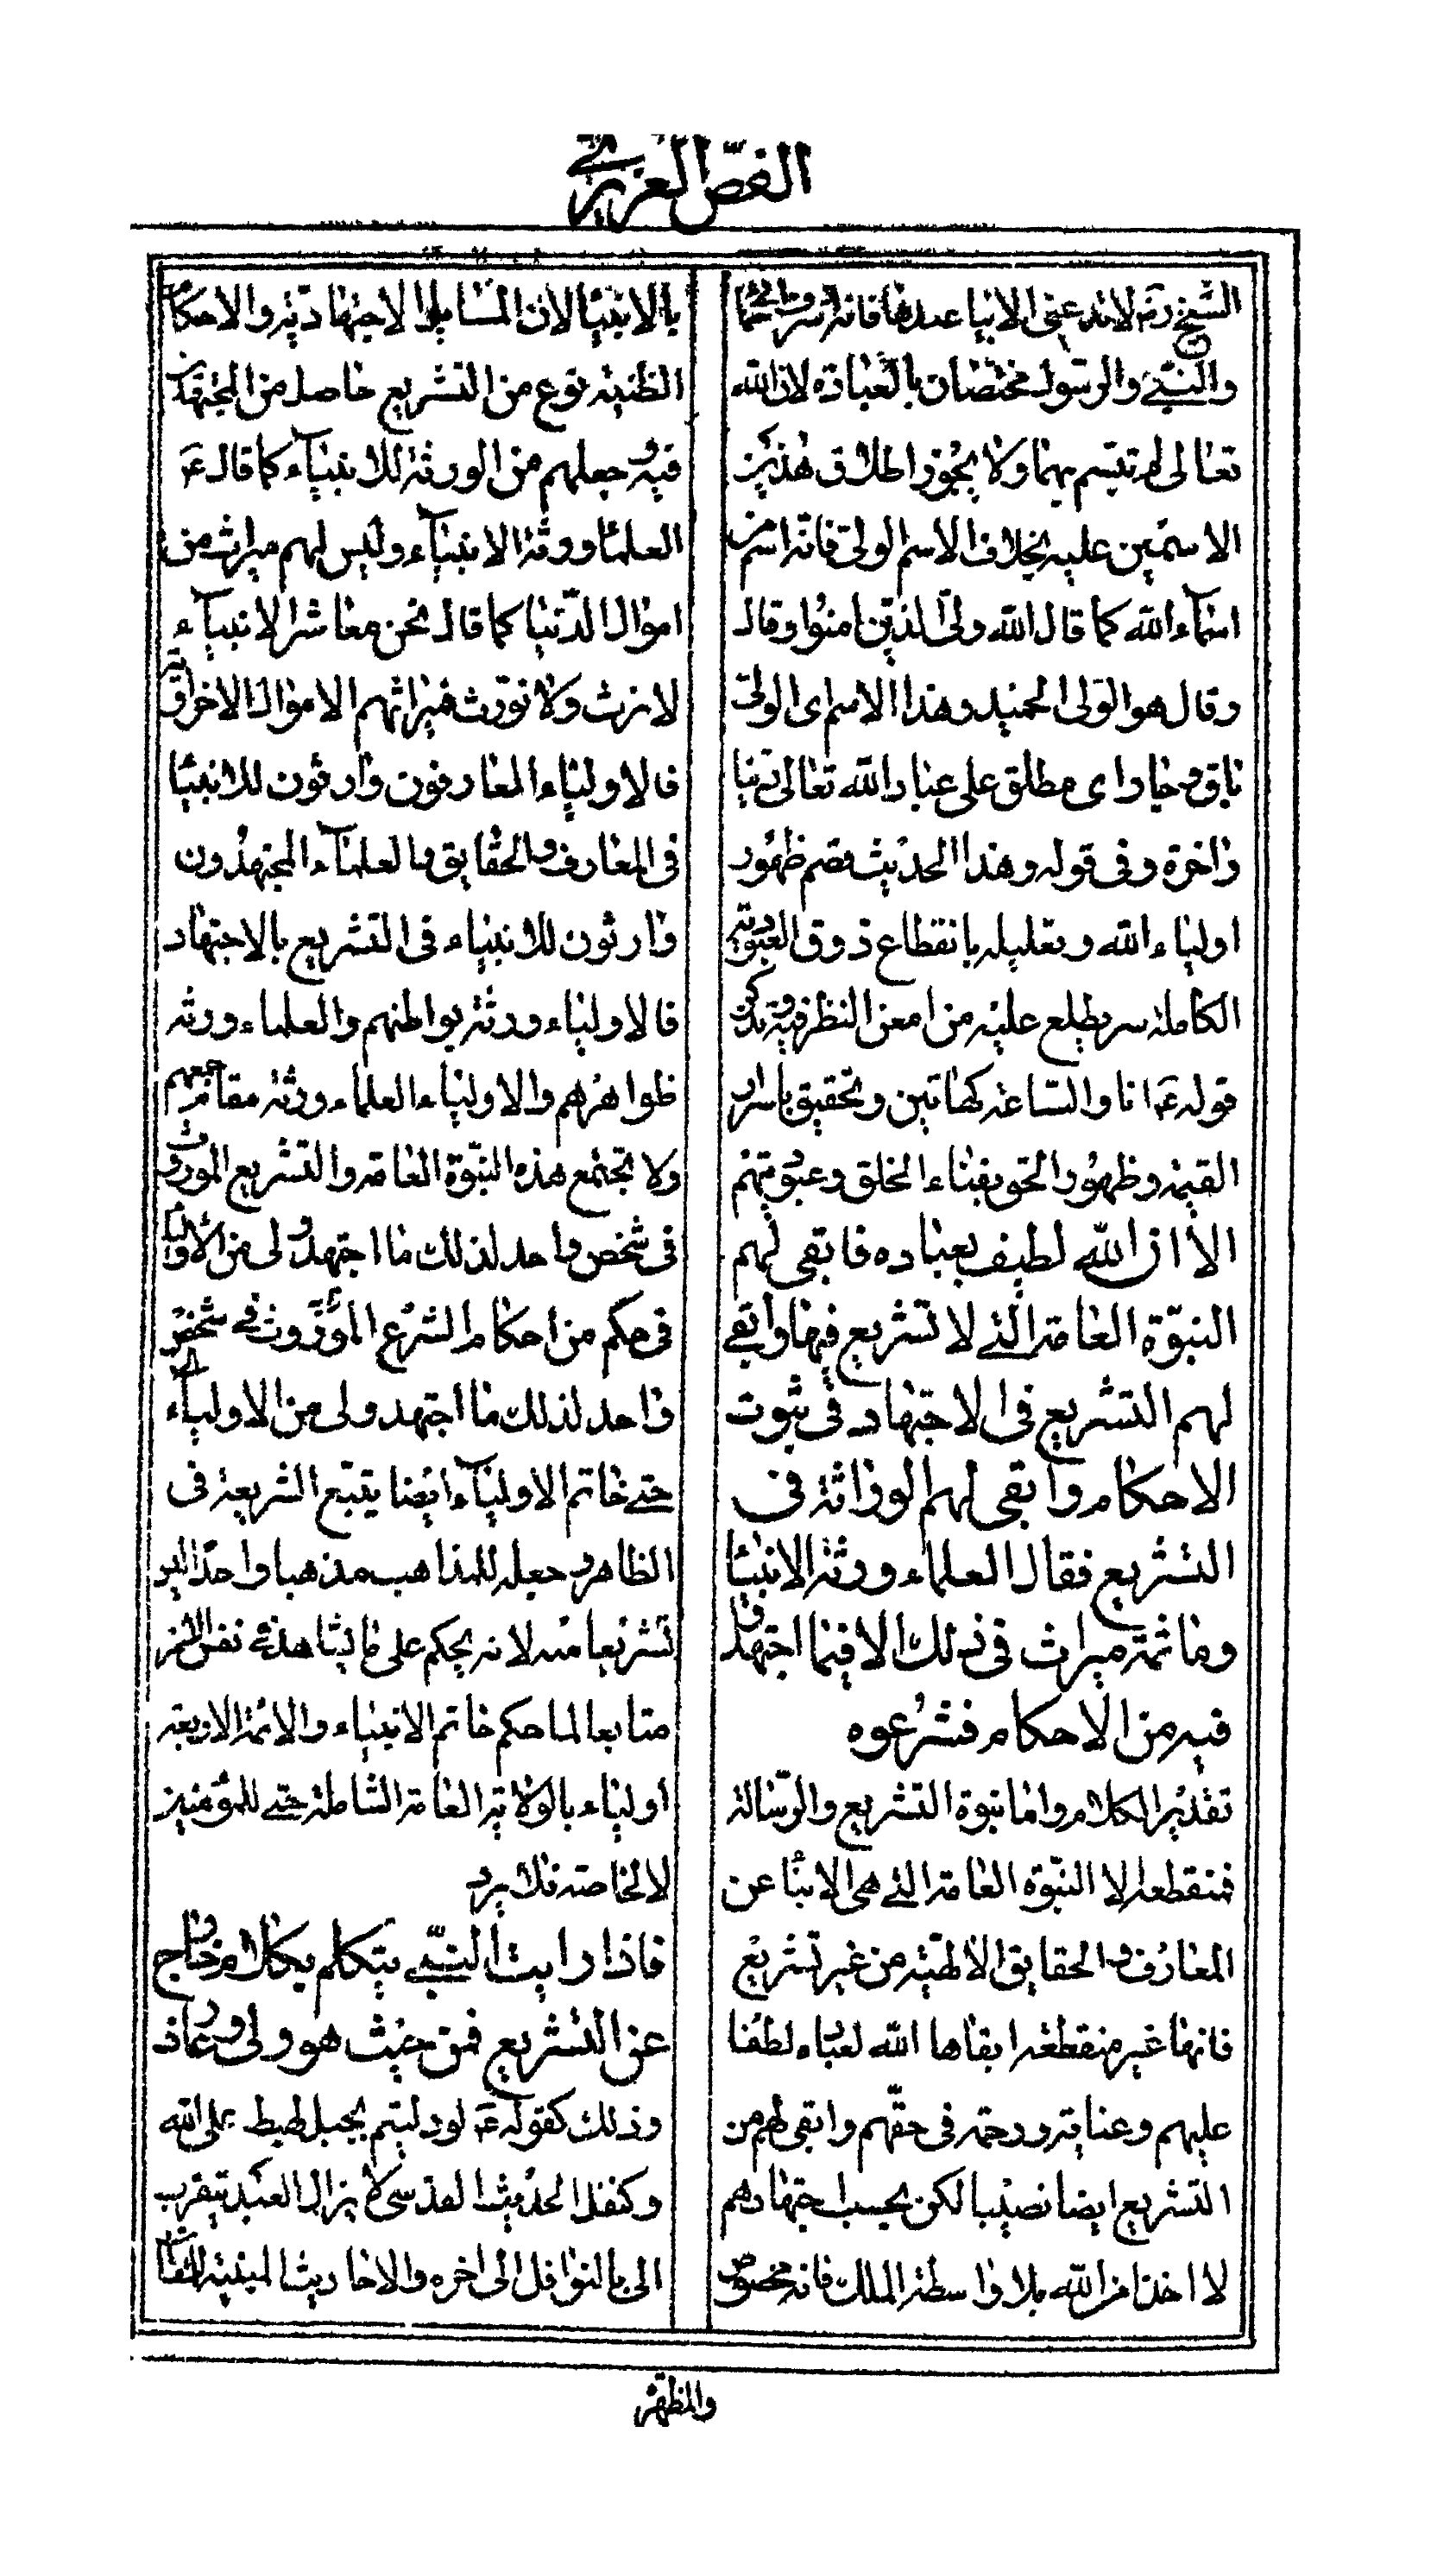 الفصّ العزيرے
الشيخ رضه لانه عنى الانبيا عندها فانه اشرف
والنبىّ والرسول مختصان بالعبادة لان الله
تعالى لم يتسم بهما ولا يجوز اطلاق هذين
الاسمين عليه بخلاف الاسم الولىّ فانّه اسم من
اسمآء الله كما قال الله ولىّ الذين امنوا وقال
وقال هو الولى الحميد وهذا الاسم اى الولىّ
باق وجار اى مطلق على عباد الله تعالى دنيا
واخرة وفى قوله وهذا الحديث قصم ظهور
اولياء الله وتعليله بانقطاع ذوق العبوديّة
الكاملة سر يطلع عليه من امعن النظر فيه وتذكر
قوله عم انا والساعة كهاتين وتحقيق باسرار
القيمة وظهور الحق بفناء الخلق وعبوديتهم
الا ان الله لطيف بعباده فابقى لهم
النبوّة العامة الّتے لا تشريع فيها وابقے
لهم التشريع فى الاجتهاد فى ثبوت
الاحكام وابقى لهم الوراثة فى
التشريع فقال العلماء ورثة الانبيا
وما ثمّة ميراث فى ذلك الا فيما اجتهدوا
فيه من الاحكام فشرعوه
تقدير الكلام واما نبوة التشريع والرسالة
فمنقطعة الا النبوّة العامة التے هى الانبا عن
المعارف والحقايق الالهيّة من غير تشريع
فانها غير منقطعة ابقاها الله لعباده لطفا
عليهم وعناية ورحمة فى حقّهم وابقى لهم من
التشريع ايضا نصيبا لكن بحسب اجتهادهم
لا اخذا من الله بلا واسطة الملك فانه مخصوص
بالانبيا لان المسايل الاجتهاديّة والاحكام
الظنية نوع من التشريع حاصل من المجتهدين
فيه وجعلهم من الورثة للانبيآء كما قال عم
العلما ورثة الانبيآء وليس لهم ميراث من
اموال الدّنيا كما قال نحن معاشر الانبيآء
لا نرث ولا نورث فميراثهم الاموال الاخراوية
فالاولياء العارفون وارثون للانبيا
فى المعارف والحقايق والعلمآء المجتهدون
وارثون للانبياء فى التشريع بالاجتهاد
فالاولياء ورثة بواطنهم والعلماء ورثة
ظواهرهم والاولياء العلماء ورثة مقام جمعهم
ولا تجتمع هذه النبّوة العامة والتشريع الموروث
فى شخص واحد لذلك ما اجتهد ولى من الاوليا
فى حكم من احكام الشرع الموروث فے شخص
واحد لذلك ما اجتهد ولى من الاوليآء
حتے خاتم الاوليآء ايضا يتبع الشريعة فى
الظاهر وجعله للمذاهب مذهبا واحدا ليس
تشريعا منه لانه يحكم على ما يشاهده فے نفس الامر
متابعا لما حكم خاتم الانبياء والائمة الاربعة
اولياء بالولاية العامة الشاملة حتے للمؤمنين
لا الخاصة فلا يرد
فاذا رايت النبىّ يتكلم بكلام خارج
عن التشريع فمن حيث هو ولى وعارف
وذلك كقوله عم لو دليتم بحبل لهبط على الله
وكنقل الحديث القدسى لا يزال العبد يتقرب
الى بالنوافل الى اخره والاحاديث المبينة
والمظهرة